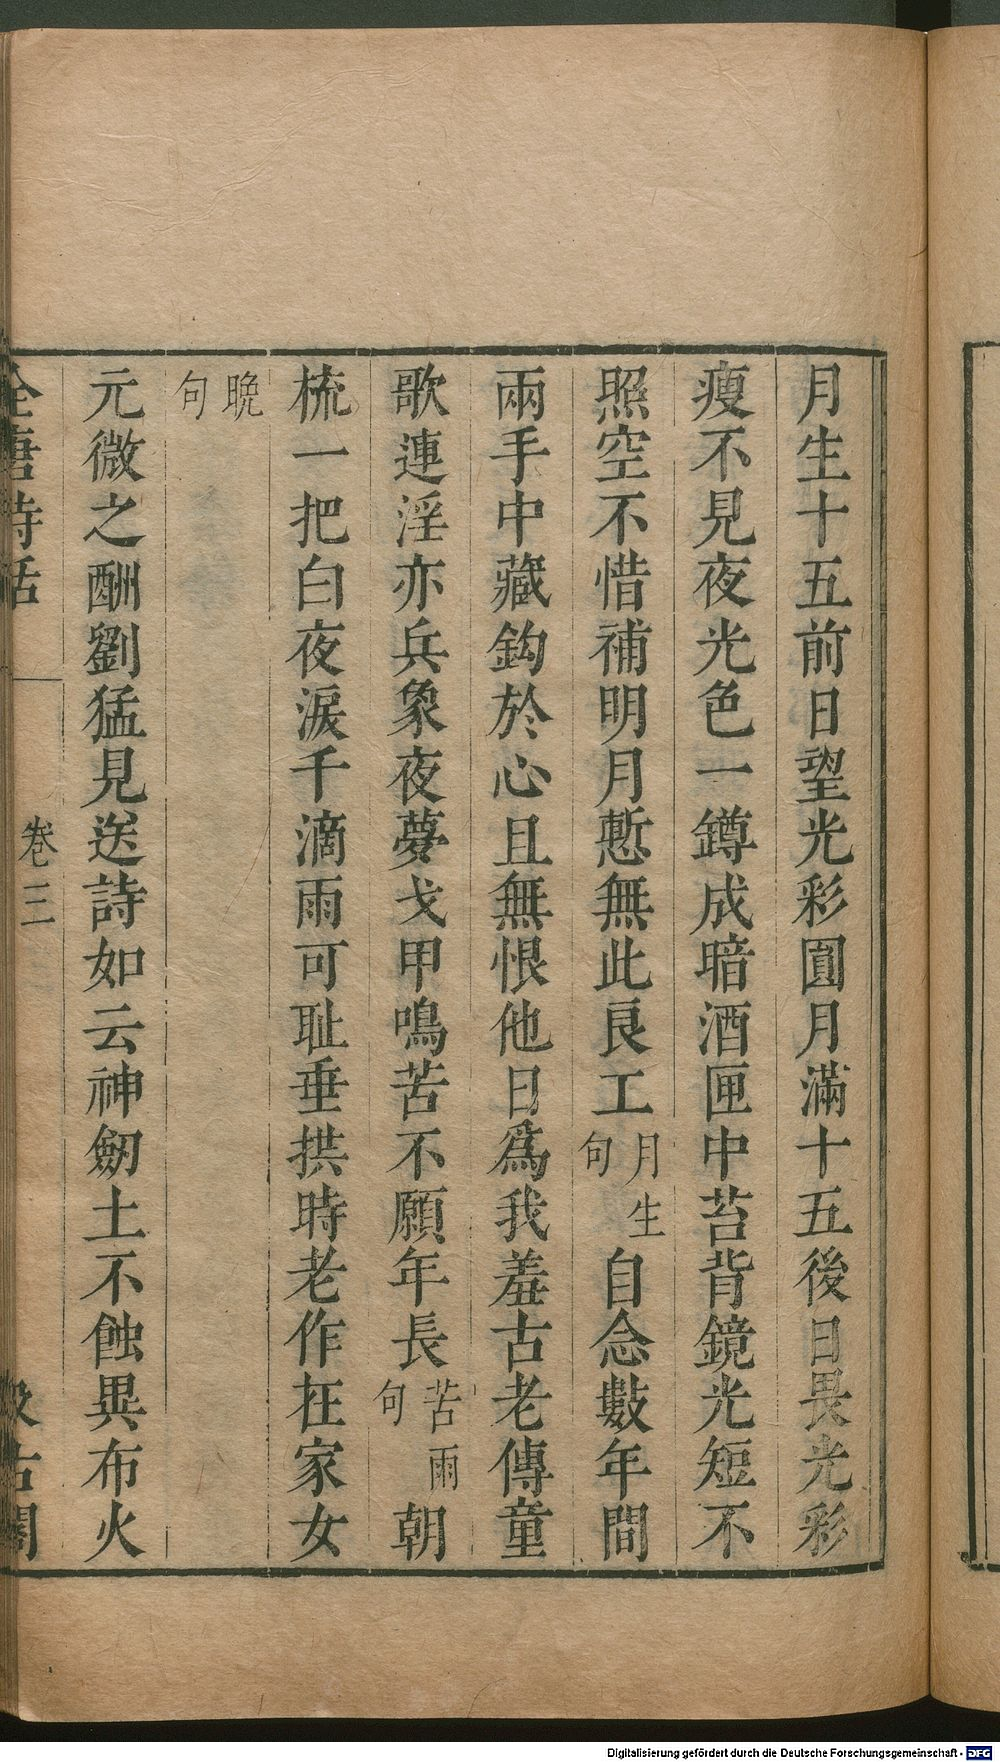 月生十五前日望光彩圓月滿十五後日畏光彩
瘦不見夜光色一鐏成暗酒匣中苔背鏡光短不
照空不惜補明月慙無此良工月生句自念數年間
兩手中藏鈎於心且無恨他日爲我羞古老傳童
歌連淫亦兵象夜夢戈甲鳴苦不願年長苦雨句朝
梳一把白夜淚千滴雨可耻垂拱時老作在家女
晩句
元微之酬劉猛見送詩如云神劒土不蝕異布火
全唐詩話
卷三
汲古閣
Digitalisierung gefördert durch die Deutsche Forschungsgemeinschaft - DFG